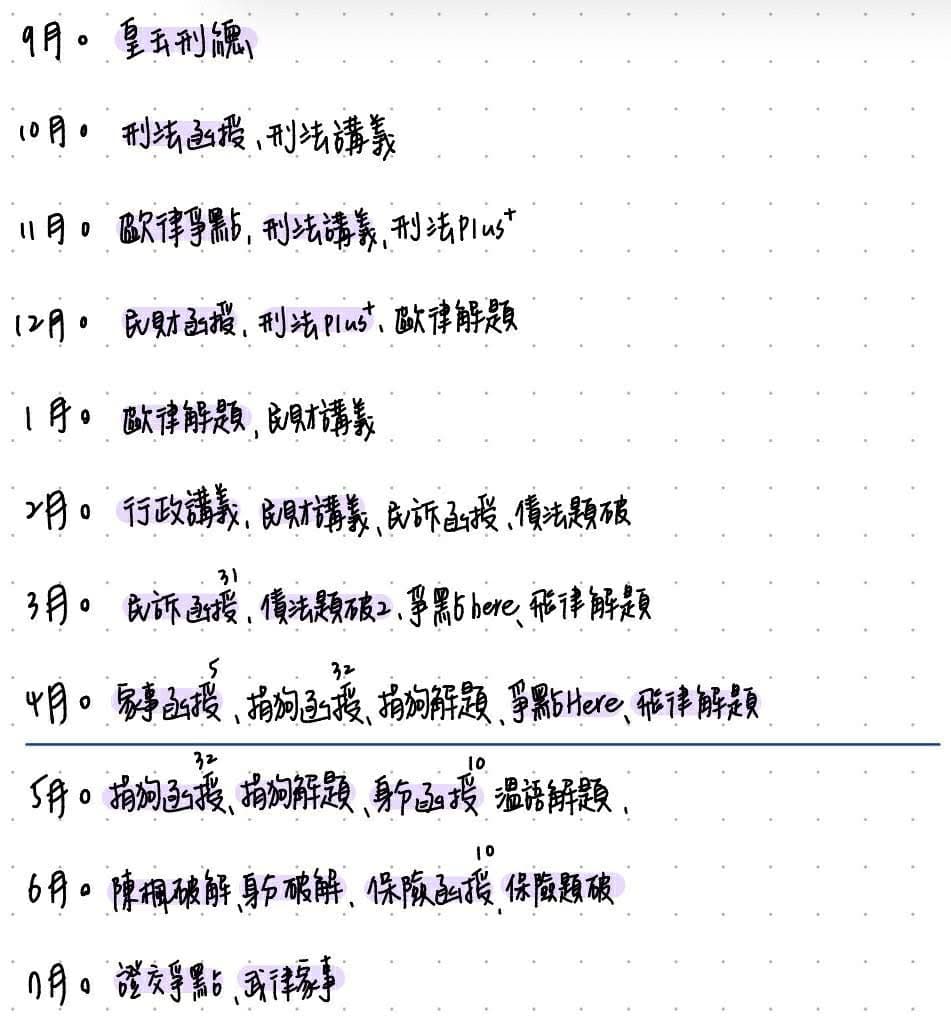 9月。皇玉刑總
10月。刑法函授、刑法講義
11月。歐律爭點、刑法講義、刑法Plus⁺
12月。民財函授、刑法Plus⁺、歐律解題
1月。歐律解題、民財講義
2月。行政講義、民財講義、民訴函授、債法題破
31
3月。民訴函授、債法題破2、爭點here、飛律解題
5 32
4月。家事函授、捐狗函授、捐狗解題、爭點Here、飛律解題
32 10
5月。捐狗函授、捐狗解題、身分函授 溫語解題、
10
6月。陳楓破解、身分破解、保險函授、保險題破
7月。證交爭點、武律家事